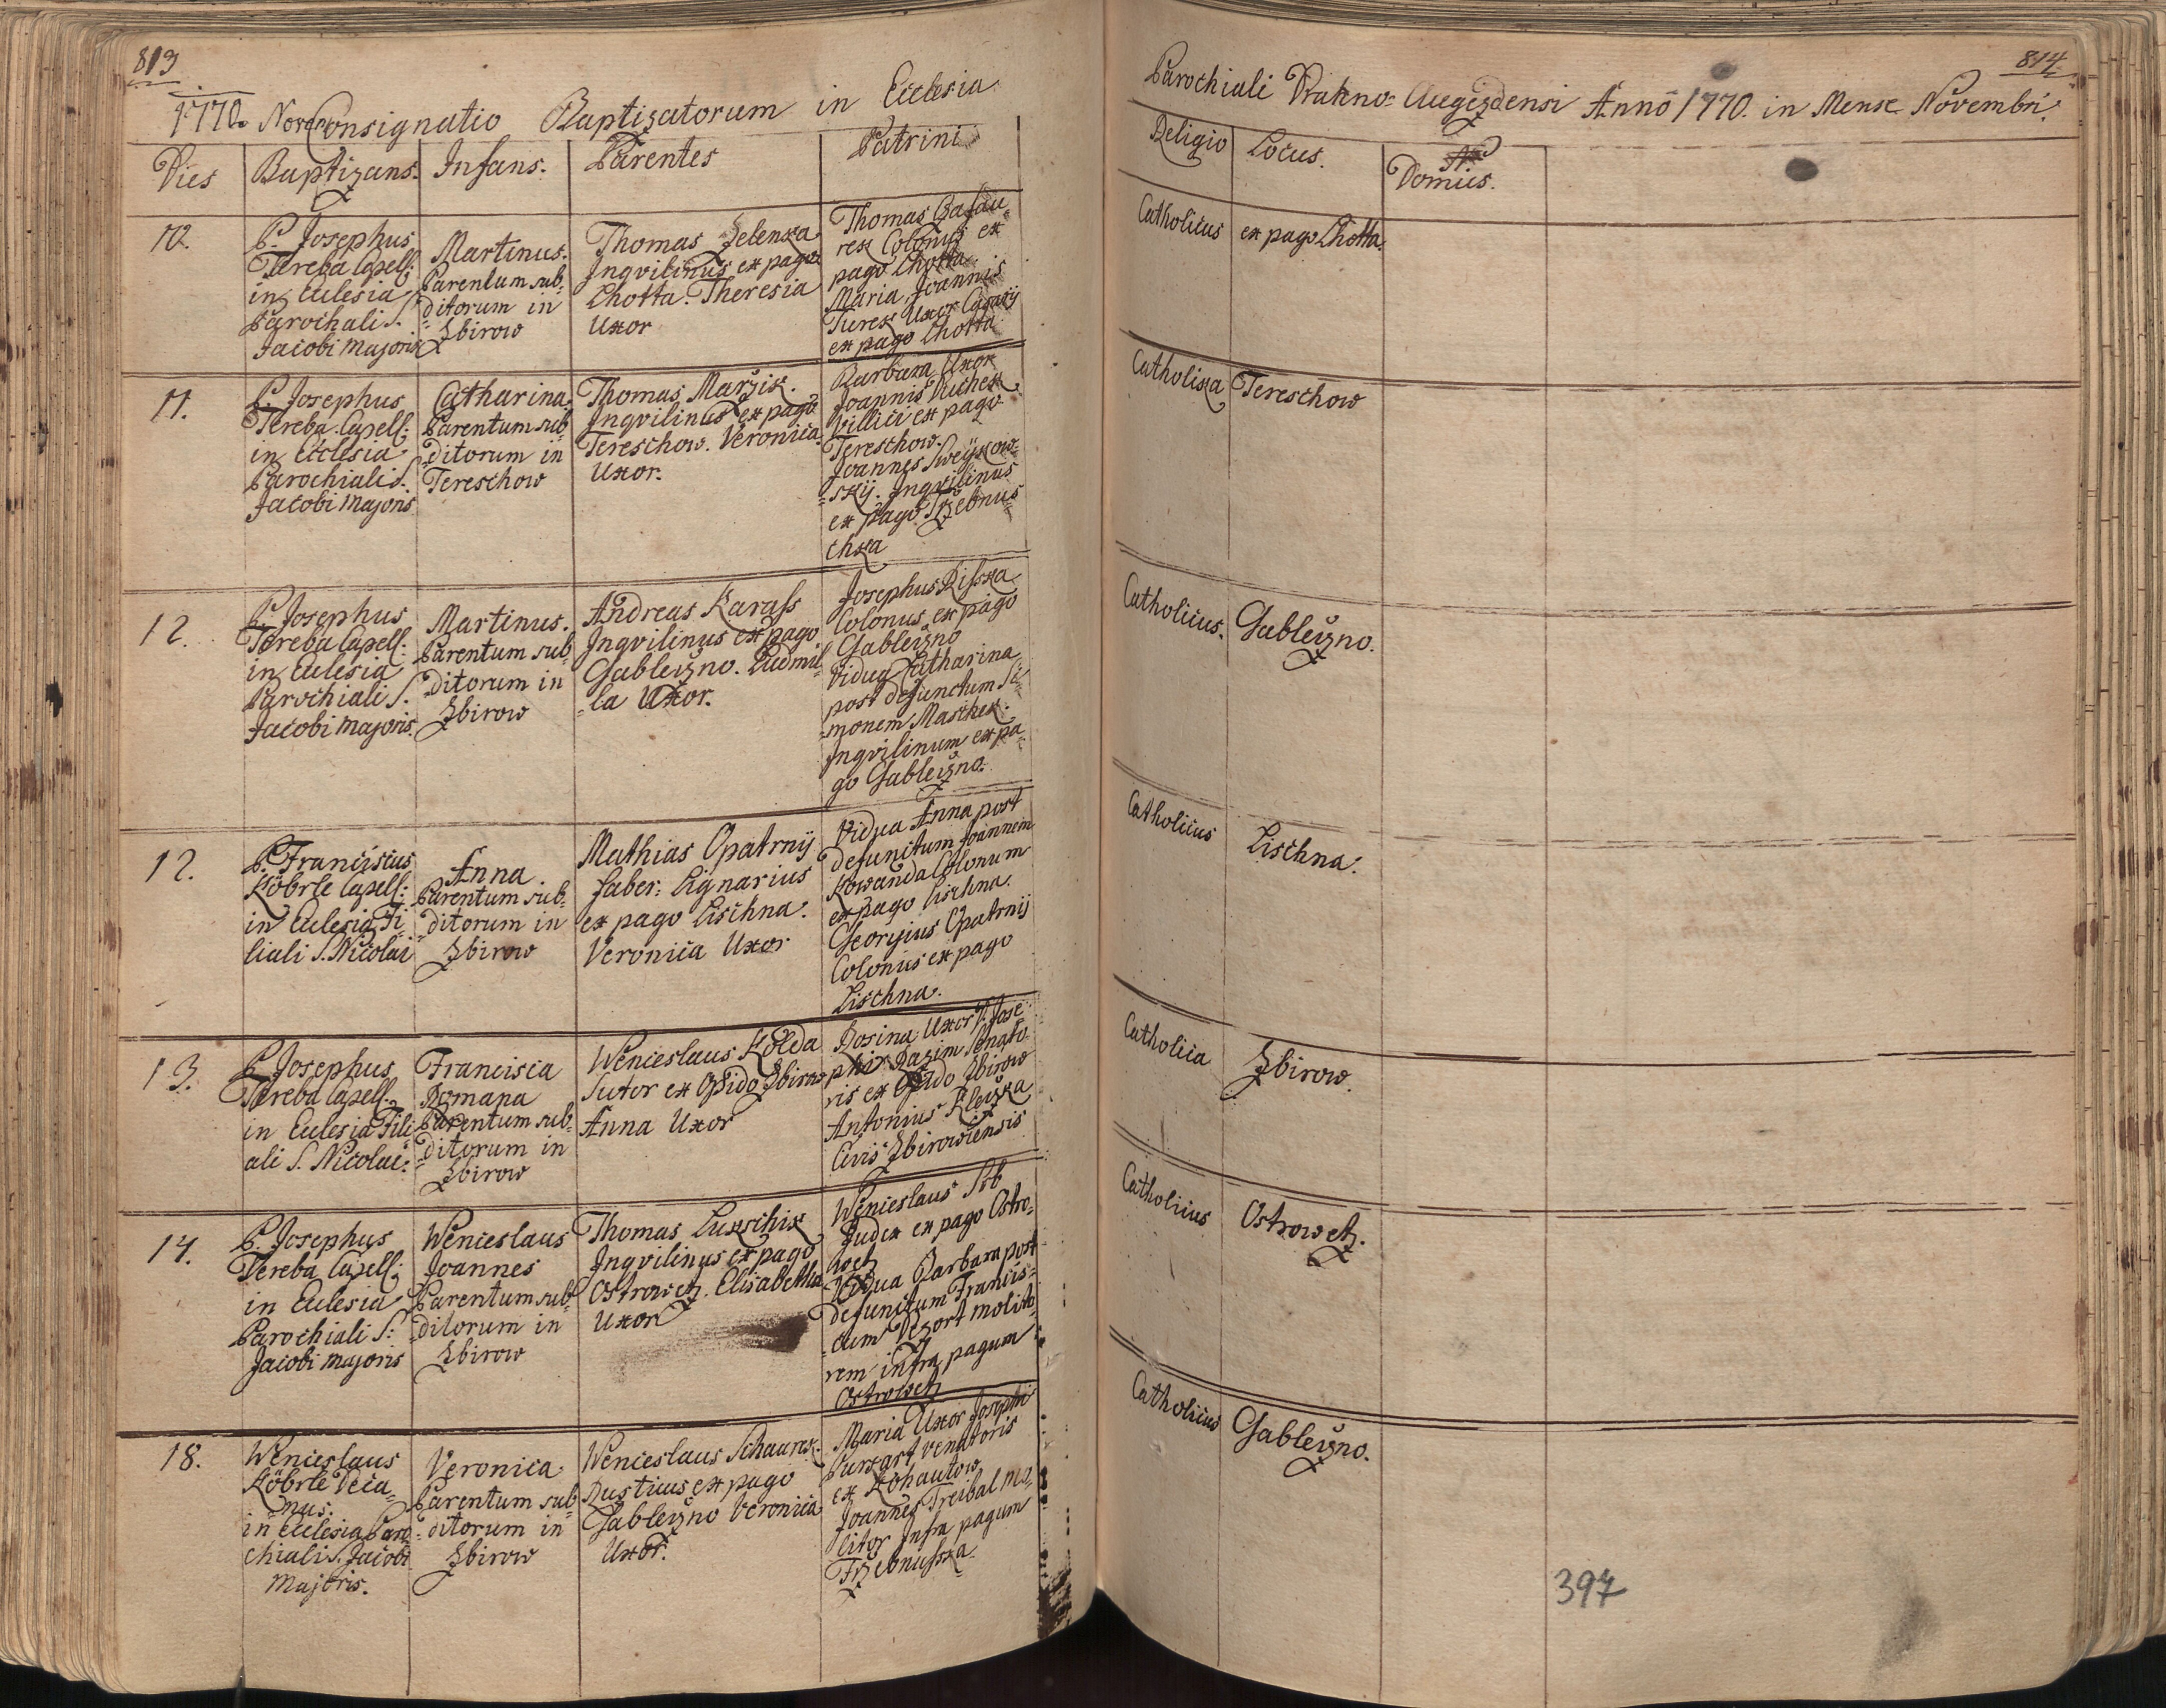 813
1770. Novem Consignatio Baptizatorum in Ecclesia
Dies
Baptizans.
Infans.
Parentes
Patrini
10.
P. Josephus
Tereba Capell:
in Eclesia
Parochiali S.
Jacobi Majoris
Martinus.
Parentum sub-
ditorum in
Zbirow
Thomas Zelenka
Inqvilinus ex pago
Lhotta. Theresia
Uxor
Thomas
rek Colonus ex
pago Lhotta
Maria Joannis
Turek Uxor
ex pago Lhotta
11.
P. Josephus
Tereba Capell:
in Ecclesia
Parochiali S.
Jacobi Majoris
Catharina
Parentum sub-
ditorum in
Tereschow
Thomas Marzik.
Inqvilinus ex pago
Tereschow. Veronica
Uxor.
Barbara Uxor
Joannis
Villici ex pago
Tereschow.
Joannes Sweijkow-
-skij. Inqvilinus
ex pago Trzebnus-
chka
12.
P. Josephus
Tereba Capell:
in Eclesia
Parochiali S.
Jacobi Majoris.
Martinus.
Parentum sub-
ditorum in
Zbirow
Andreas Karass
Inqvilinus ex pago
Gableczno. Ludmil-
-la Uxor.
Josephus Risska
Colonus ex pago
Gableczno
Vidua Catharina
post defunctum Si-
-monem Maschek.
Inqvilinum ex pa-
go Gableczno.
12.
P. Franciscus
Köbrle Capell:
in Eclesia Fi-
liali S. Nicolai
Anna
Parentum sub-
ditorum in
Zbirow
Mathias Opatrnij
faber: Lignarius
ex pago Lischna.
Veronica Uxor
Vidua Anna post
defunctum Joannem
Kowanda Colonum
ex pago Lischna.
Georgius Opatrnij
Colonus ex pago
Lischna.
13.
P. Josephus
Tereba Capell.
in Eclesia Fili-
ali S. Nicolai.
Francisca
Romana
Parentum sub-
ditorum in
Zbirow
Wenceslaus Kolda
Sutor ex Opido Zbirow
Anna Uxor
Rosina Uxor P. Jose-
phi Razim Senato-
ris ex Opido Zbirow
Antonius Kleczka
Civis Zbirowiensis
14.
P. Josephus
Tereba Capell:
in Eclesia
Parochiali S:
Jacobi Majoris
Wenceslaus
Joannes
Parentum sub-
ditorum in
Zbirow
Thomas Lukschik
Inqvilinus ex pago
Ostrowetz. Elisabetha
Uxor
Wenceslaus Stb
Judex ex pago Ostro-
wetz
Vidua Barbara post
defunctum Francis-
-cum Wezort molito-
rem infra pagum
Ostrowetz
18.
Wenceslaus
Köbrle Deca-
nus.
in Ecclesia Paro-
chiali S. Jacobi
Majoris.
Veronica
Parentum sub
ditorum in
Zbirow
Wenceslaus Schaurek.
Rusticus ex pago
Gableczno Veronica
Uxor.
Maria Uxor Josephi
Purkart venatoris
ex Kohautow
Joannes Treibal mo-
litor Infra pagum
Trzebnusska.
814
Parochiali Wrahno-Augezdensi Anno 1770. in Mense Novembri.
Religio
Locus.
Nr
Domus.
Catholicus
ex pago Lhotta.
Catholica
Tereschow
Catholicus.
Gableczno.
Catholicus
Lischna.
Catholica
Zbirow.
Catholicus
Ostrowetz.
Catholicus
Gableczno.
397